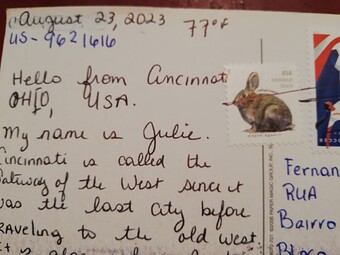 August 23, 2023 77°F
US-9621616
Hello from Cincinnati
OHIO, USA.
My name is Julie.
Cincinnati is called the
Gateway of the West since it
was the last city before
traveling to the old west
USA
Fernan
RUA
Bairro